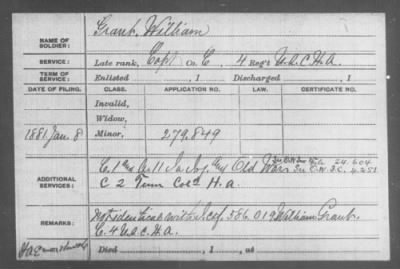 Grant, William
NAME OF SOLDIER:
SERVICE: Late rank, Capt Co. C, 4 Reg't U.S.C.H.A.
TERM OF SERVICE: Enlisted , 1 Discharged , 1
DATE OF FILING. CLASS. APPLICATION NO. LAW. CERTIFICATE NO.
Invalid,
Widow,
1881 Jan. 8 Minor, 279.849
Old War 24.604
4.251
ADDITIONAL SERVICES:
C 2 Tenn Cold H.A.
REMARKS: Not identical with S.Ctf. 586.019 William Grant
C. 4 U.S.C.H.A.
Died , 1 , at